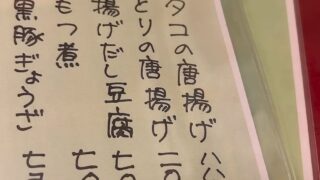 タコの唐揚げ 八八
とりの唐揚げ 一〇
揚げだし豆腐 七〇
もつ煮 七〇
黒豚ぎょうざ 七